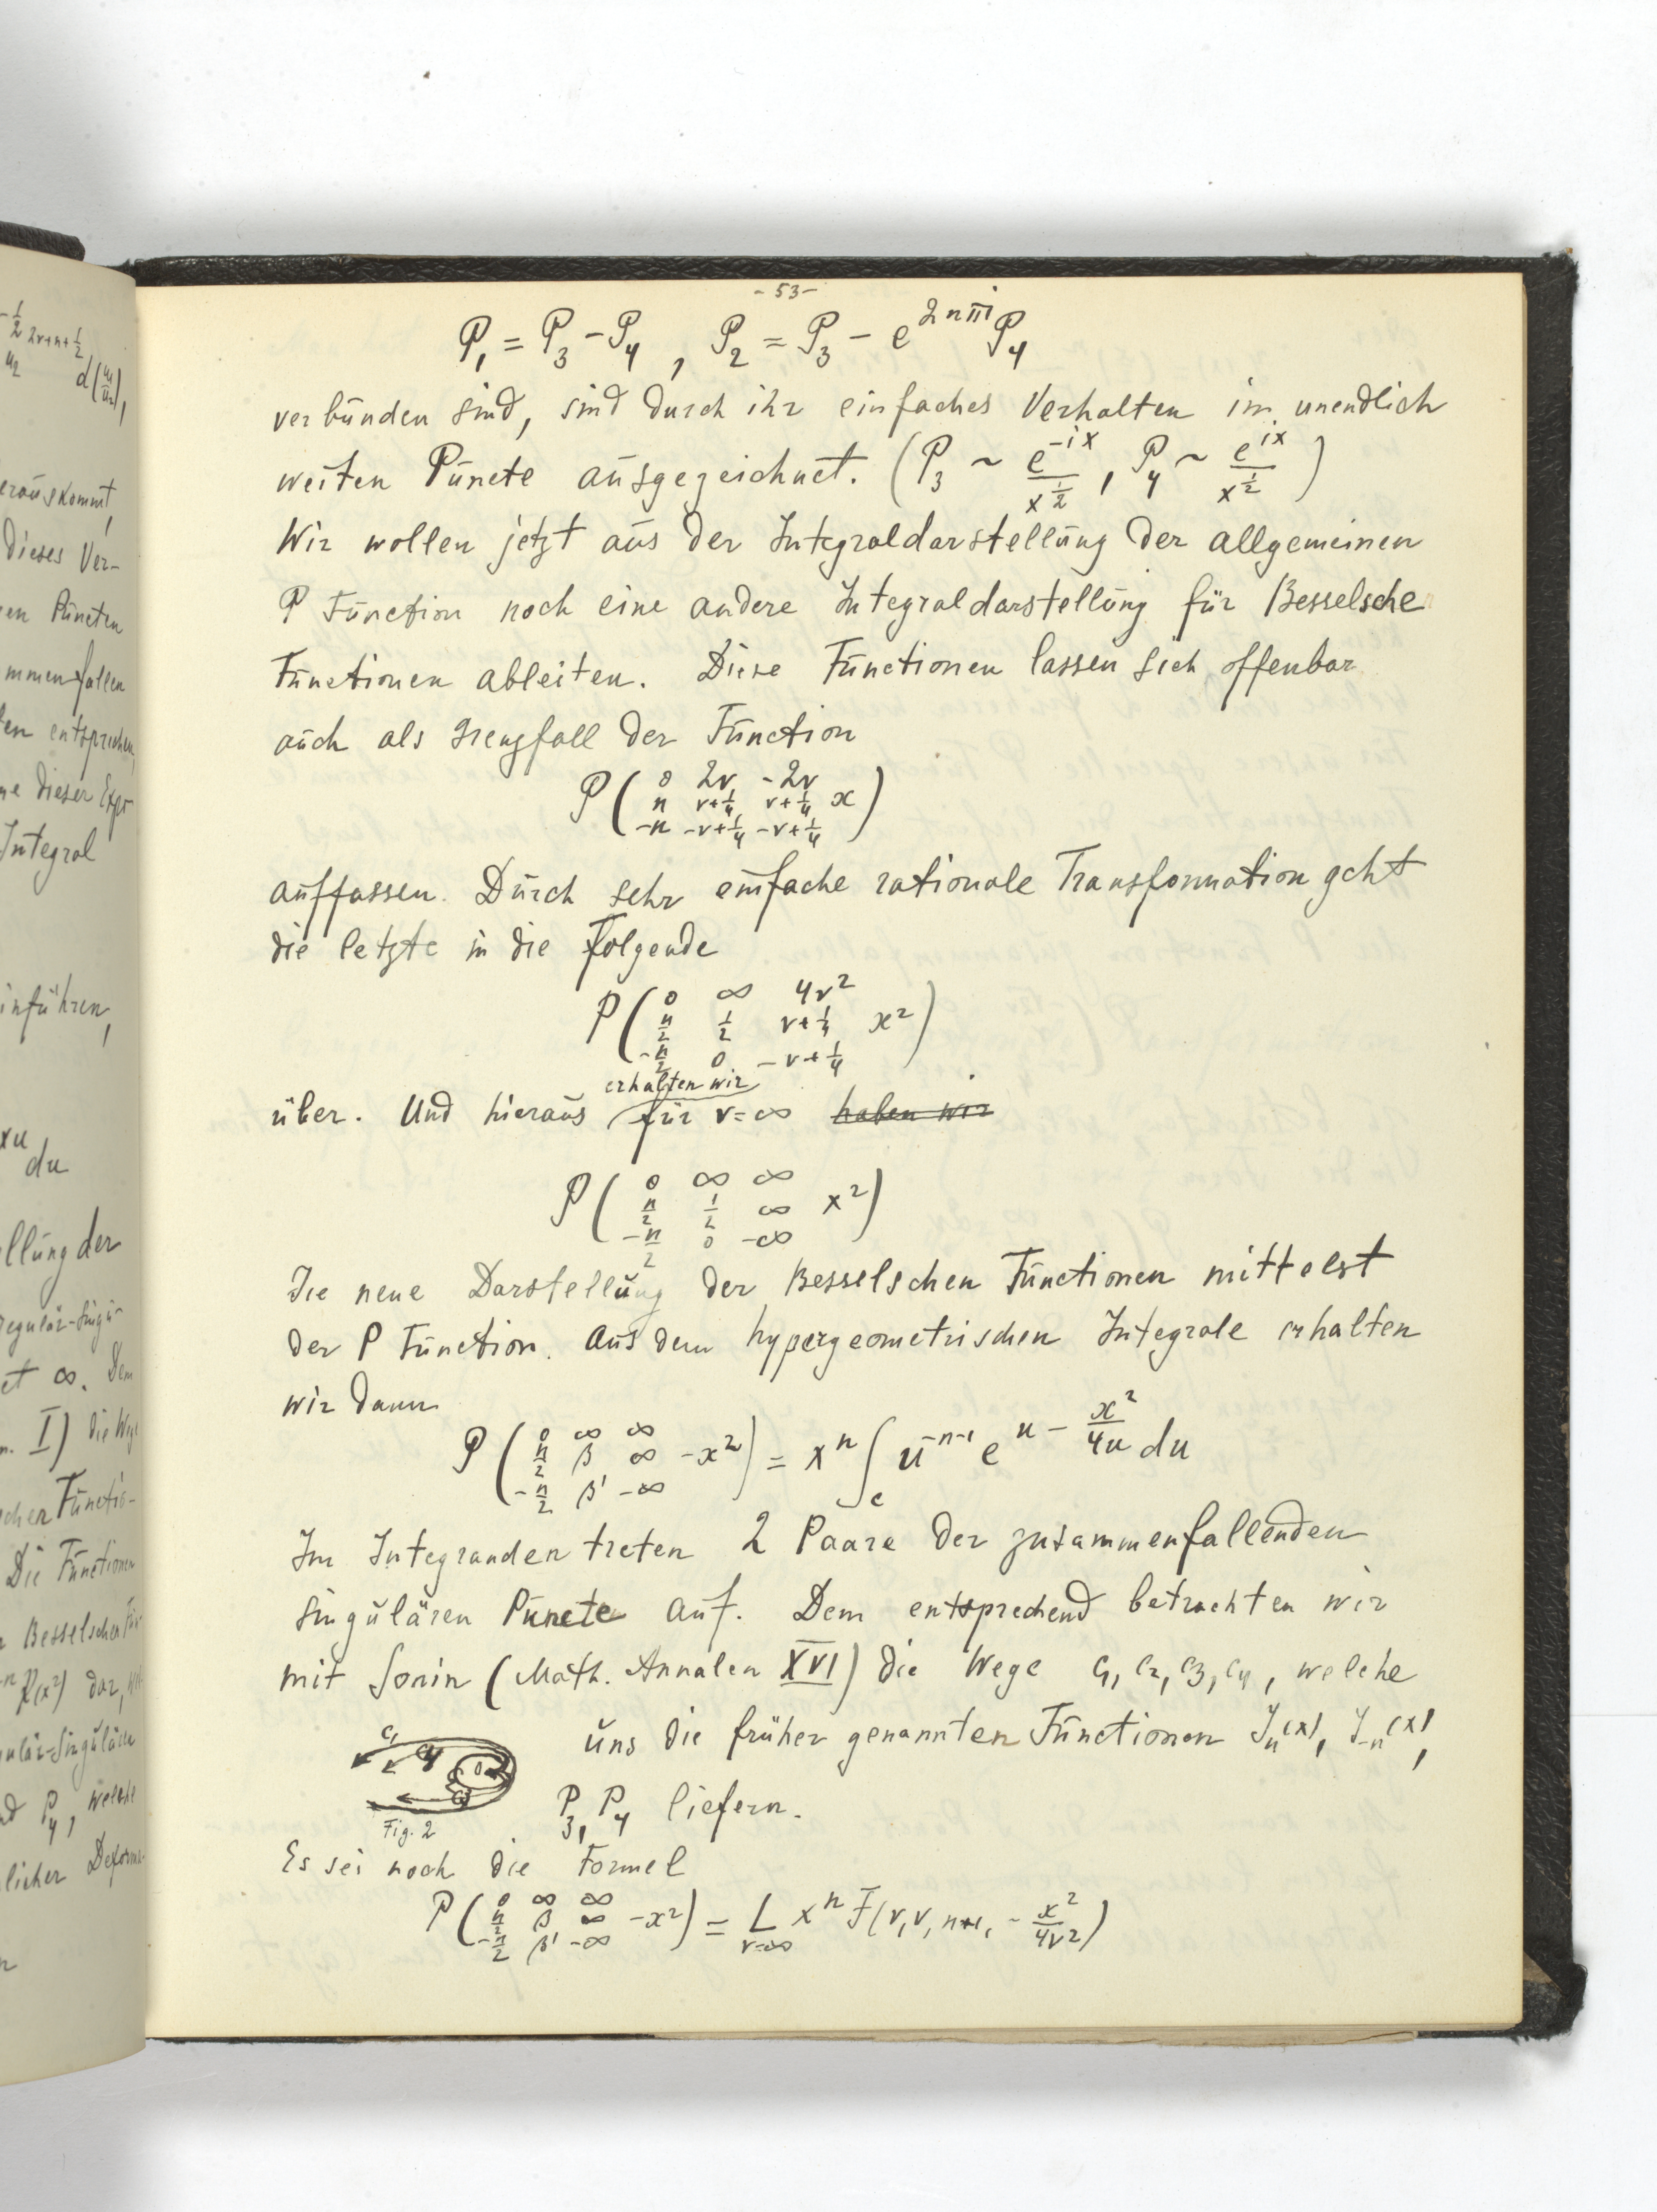 - 53 -
P₁ = P₃ - P₄ , P₂ = P₃ - e^{2nπi} P₄
verbunden sind, sind durch ihr einfaches Verhalten im unendlich
weiten Puncte ausgezeichnet. (P₃ ~ e^{-ix}/x^{1/2}, P₄ ~ e^{ix}/x^{1/2})
Wir wollen jetzt aus der Integraldarstellung der allgemeinen
P Function noch eine andere Integraldarstellung für Besselsche
Functionen ableiten. Diese Functionen lassen sich offenbar
auch als Grenzfall der Function
P ( 0 2ν -2ν
n ν+1/4 ν+1/4 x )
-n -ν+1/4 -ν+1/4
auffassen. Durch sehr einfache rationale Transformation geht
die letzte in die folgende
P ( 0 ∞ 4ν²
n/2 1/2 ν+1/4 x² )
-n/2 0 -ν+1/4
erhalten wir
über. Und hieraus für ν=∞ haben wir
P ( 0 ∞ ∞
n/2 1/2 ∞ x² )
-n/2 0 -∞
Die neue Darstellung der Besselschen Functionen mittelst
der P Function. Aus dem hypergeometrischen Integrale erhalten
wir dann
P ( 0 ∞ ∞
n/2 β ∞ -x² ) = xⁿ ∫_c u^{-n-1} e^{u - x²/4u} du
-n/2 β' -∞
Im Integranden treten 2 Paare der zusammenfallenden
singulären Puncte auf. Dem entsprechend betrachten wir
mit Sonin (Math. Annalen XVI) die Wege c₁, c₂, c₃, c₄, welche
uns die früher genannten Functionen J_n(x), J_{-n}(x),
P₃, P₄ liefern.
c₁
Fig. 2
Es sei noch die Formel
P ( 0 ∞ ∞
n/2 β ∞ -x² ) = L_{ν=∞} xⁿ F(ν, ν, n+1, - x²/4ν²)
-n/2 β' -∞